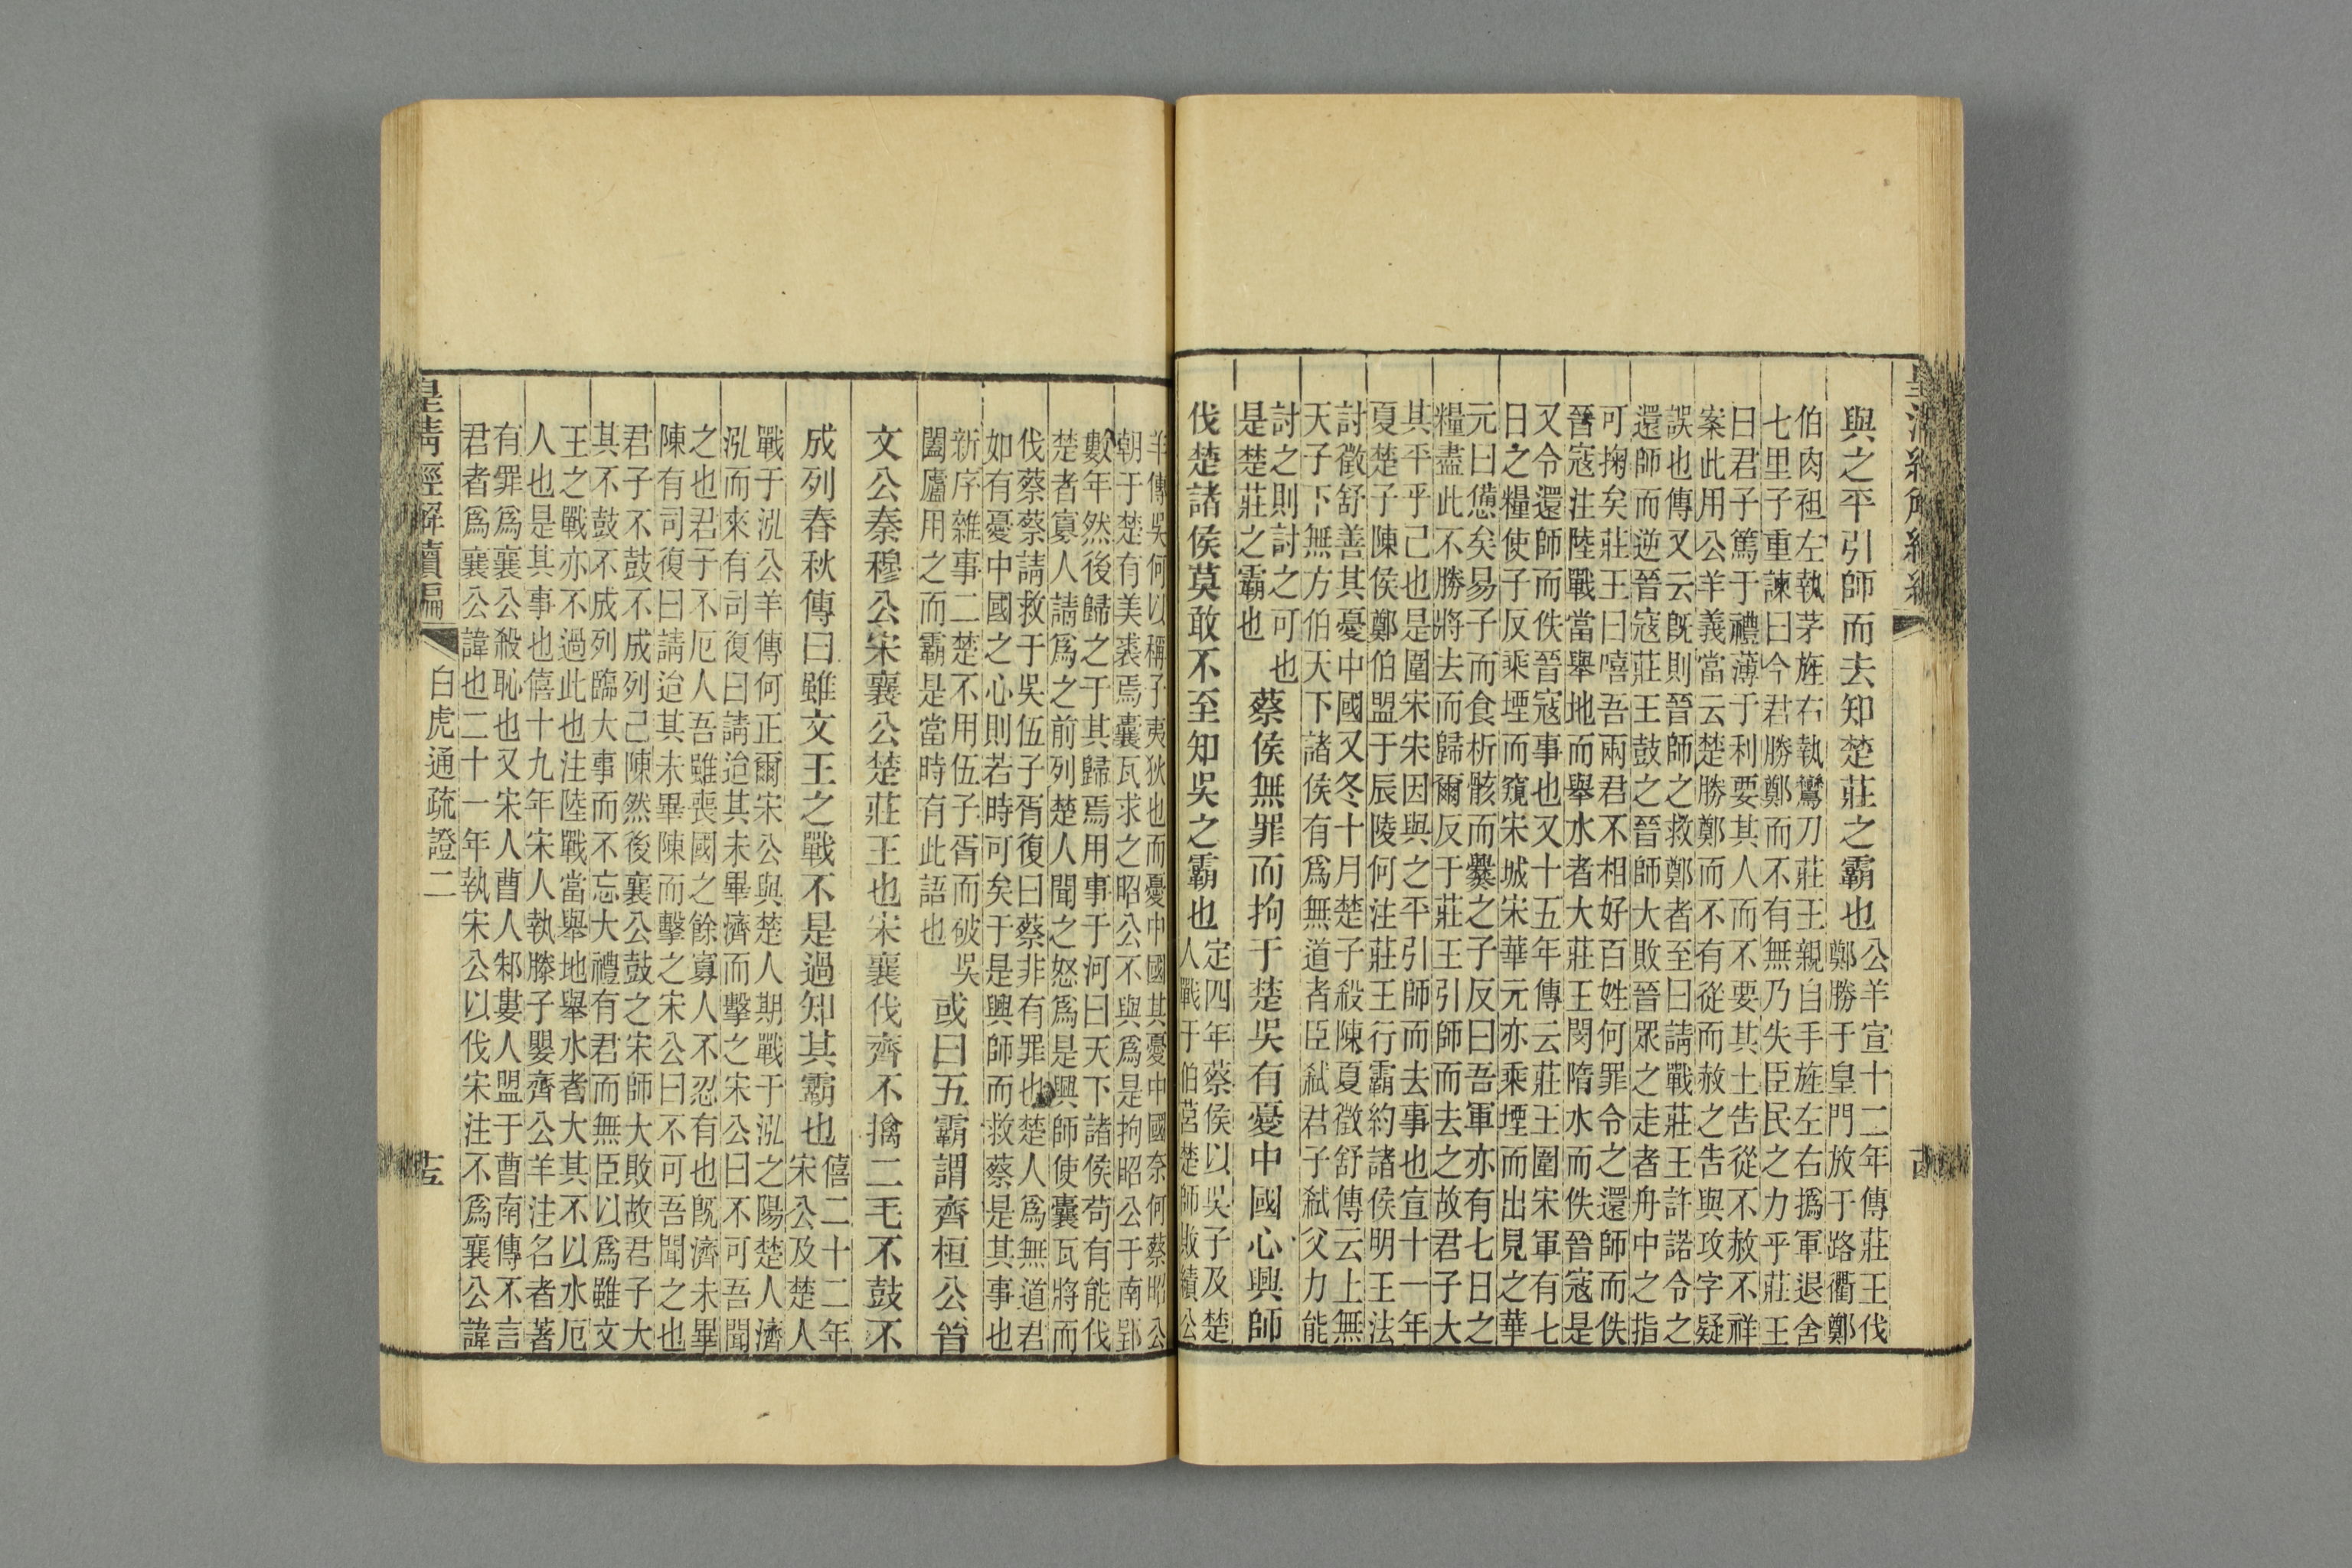 與之平引師而去知楚莊之霸也公羊宣十二年傳莊王伐
鄭勝于皇門放于路衢鄭
伯肉袒左執茅旌右執鸞刀莊王親自手旌左右撝軍退舍
七里子重諫曰今君勝鄭而不有無乃失臣民之力乎莊王
曰君子篤于禮薄于利要其人而不要其土告從不赦不祥
案此用公羊義當云楚勝鄭而不有從而赦之告與攻字疑
誤也傳又云旣則晉師之救鄭者至曰請戰莊王許諾令之
還師而逆晉寇莊王鼓之晉師大敗晉眾之走者舟中之指
可掬矣莊王曰嘻吾兩君不相好百姓何罪令之還師而佚
晉寇注陸戰當舉地而舉水者大莊王閔隋水而佚晉寇是
又令還師而佚晉寇事也又十五年傳云莊王圍宋軍有七
日之糧使子反乘堙而窺宋城宋華元亦乘堙而出見之華
元曰憊矣易子而食析骸而爨之子反曰吾軍亦有七日之
糧盡此不勝將去而歸爾反于莊王引師而去之故君子大
其平乎己也是圍宋宋因與之平引師而去事也宣十一年
夏楚子陳侯鄭伯盟于辰陵何注莊王行霸約諸侯明王法
討徵舒善其憂中國又冬十月楚子殺陳夏徵舒傳云上無
天子下無方伯天下諸侯有爲無道者臣弑君子弑父力能
討之則討之可也
是楚莊之霸也
蔡侯無罪而拘于楚吳有憂中國心興師
伐楚諸侯莫敢不至知吳之霸也定四年蔡侯以吳子及楚
人戰于伯莒楚師敗績公
羊傳吳何以稱子夷狄也而憂中國其憂中國奈何蔡昭公
朝于楚有美裘焉囊瓦求之昭公不與爲是拘昭公于南郢
數年然後歸之于其歸焉用事于河曰天下諸侯苟有能伐
楚者寡人請爲之前列楚人聞之怒爲是興師使囊瓦將而
伐蔡蔡請救于吳伍子胥復曰蔡非有罪也楚人爲無道君
如有憂中國之心則若時可矣于是興師而救蔡是其事也
新序雜事二楚不用伍子胥而破吳
闔廬用之而霸是當時有此語也
或曰五霸謂齊桓公晉
文公秦穆公宋襄公楚莊王也宋襄伐齊不擒二毛不鼓不
成列春秋傳曰雖文王之戰不是過知其霸也僖二十二年
宋公及楚人
戰于泓公羊傳何正爾宋公與楚人期戰于泓之陽楚人濟
泓而來有司復曰請迨其未畢濟而擊之宋公曰不可吾聞
之也君子不厄人吾雖喪國之餘寡人不忍有也旣濟未畢
陳有司復曰請迨其未畢陳而擊之宋公曰不可吾聞之也
君子不鼓不成列己陳然後襄公鼓之宋師大敗故君子大
其不鼓不成列臨大事而不忘大禮有君而無臣以爲雖文
王之戰亦不過此也注陸戰當舉地舉水者大其不以水厄
人也是其事也僖十九年宋人執滕子嬰齊公羊注名者著
有罪爲襄公殺恥也又宋人曹人邾婁人盟于曹南傳不言
君者爲襄公諱也二十一年執宋公以伐宋注不爲襄公諱
皇清經解續編
白虎通疏證二